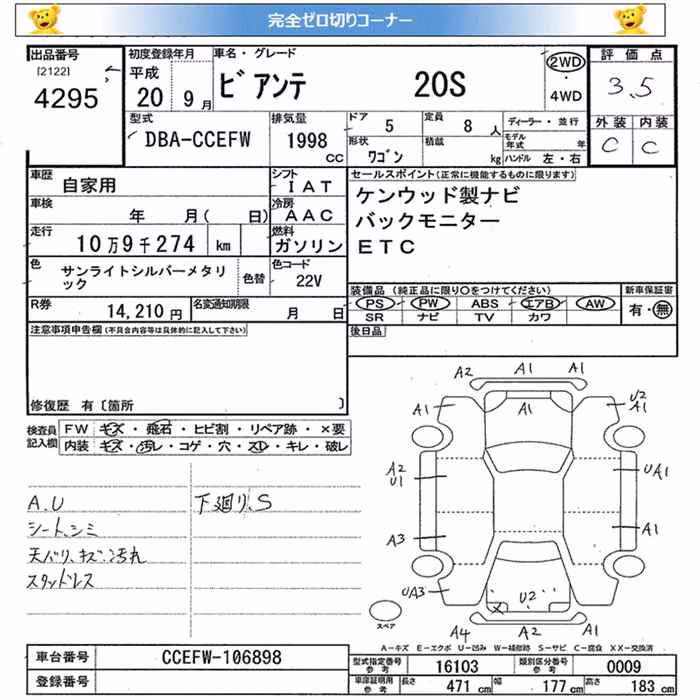 完全ゼロ切りコーナー
出品番号
[2122]
4295
初度登録年月
平成
20 9月
車名・グレード
ビアンテ 20S
2WD
・
4WD
評価点
3.5
外装 内装
C C
型式
DBA-CCEFW
排気量
1998
CC
ドア
5
定員
8 人
形状
ワゴン
積載
kg
ディーラー・並行
モデル年式 年
ハンドル 左・右
車歴
自家用
シフト
IAT
車検
年 月( 日)
冷房
AAC
走行
10万9千274 km
燃料
ガソリン
色
サンライトシルバーメタリック
色替
色コード
22V
R券
14,210 円
名変通知期限
月 日
セールスポイント(正常に機能するものに限ります)
ケンウッド製ナビ
バックモニター
ETC
装備品 (純正品に限り○をつけてください)
PS PW ABS エアB AW
SR ナビ TV カワ
新車保証書
有・無
後日品
注意事項申告欄(不具合内容等は具体的に記入して下さい)
修復歴 有〔箇所 〕
検査員記入欄
FW キズ・飛石・ヒビ割・リペア跡・×要
内装 キズ・汚レ・コゲ・穴・スレ・キレ・破レ
A.U
シート、シミ
天バリ、キズ、汚れ
スタッドレス
下廻り、S
A2 A1 A1
A1 A1 U2 A1
A2 U1 UA1
A3 A1
UA3 U2
A4 A2 A1
スペア
A-キズ E-エクボ U-凹み W-補修跡 S-サビ C-腐食 XX-交換済
車台番号
CCEFW-106898
登録番号
型式指定番号 参考
16103
類別区分番号 参考
0009
車庫証明用 参考
長さ 471 cm 幅 177 cm 高さ 183 cm